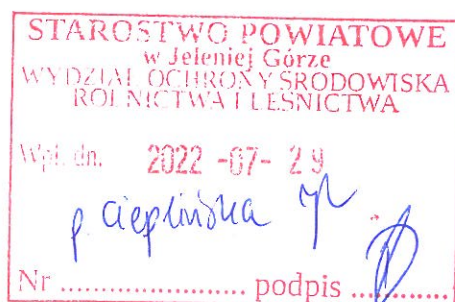 STAROSTWO POWIATOWE
w Jeleniej Górze
WYDZIAŁ OCHRONY ŚRODOWISKA
ROLNICTWA I LEŚNICTWA
Wpł. dn. 2022 -07- 29
p. Cieplińska
Nr ..................... podpis ............